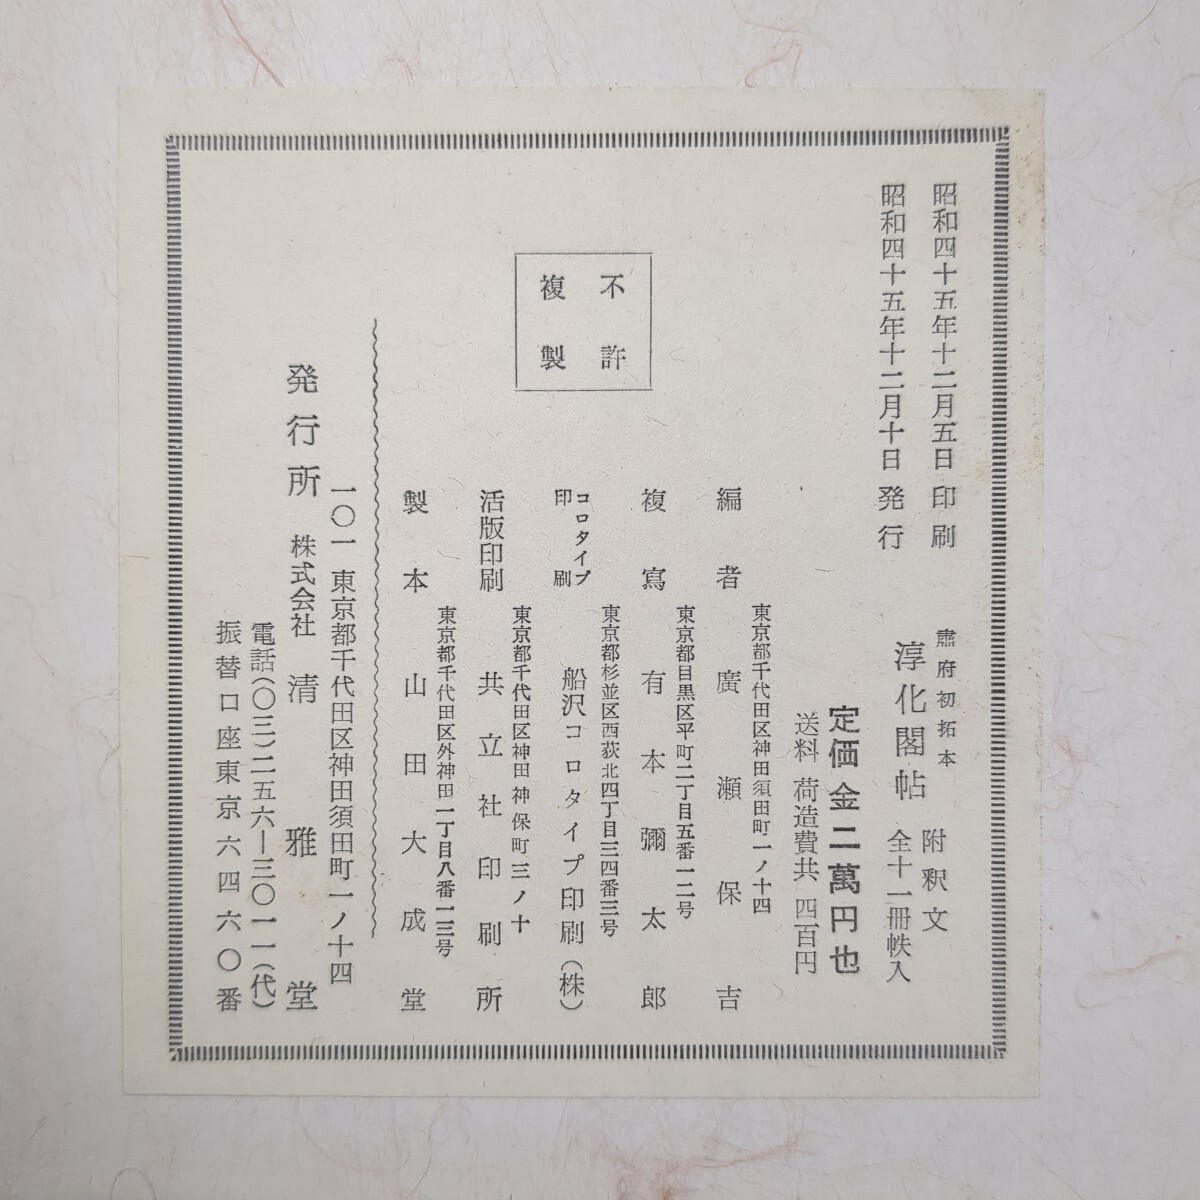 昭和四十五年十二月五日 印刷
昭和四十五年十二月十日 発行
肅府初拓本
淳化閣帖
附釈文
全十一冊帙入
定価金二萬円也
送料 荷造費共 四百円
東京都千代田区神田須田町一ノ十四
編者 廣瀬保吉
東京都目黒区平町二丁目五番一二号
複寫 有本彌太郎
東京都杉並区西荻北四丁目三四番三号
コロタイプ
印刷
船沢コロタイプ印刷(株)
東京都千代田区神田神保町三ノ十
活版印刷 共立社印刷所
東京都千代田区外神田一丁目八番一三号
製本 山田大成堂
不許
複製
一〇一 東京都千代田区神田須田町一ノ十四
発行所 株式会社 清雅堂
電話(〇三)二五六ー三〇一一(代)
振替口座東京六四六〇番